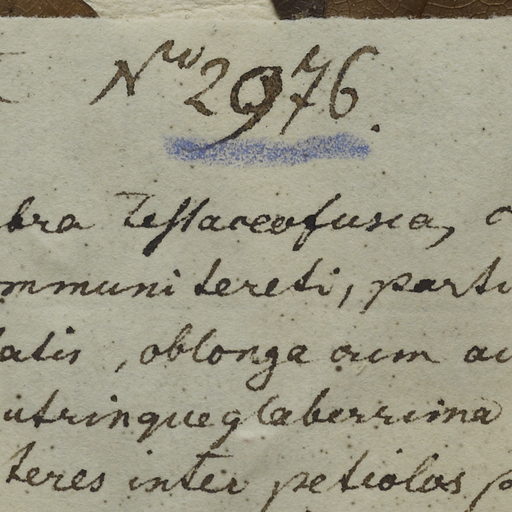 Nro 2976.
bra Testaceofusca,
mmuni tereti, parti
latis, oblonga cum au
utrinque glaberrima
teres inter petiolos p